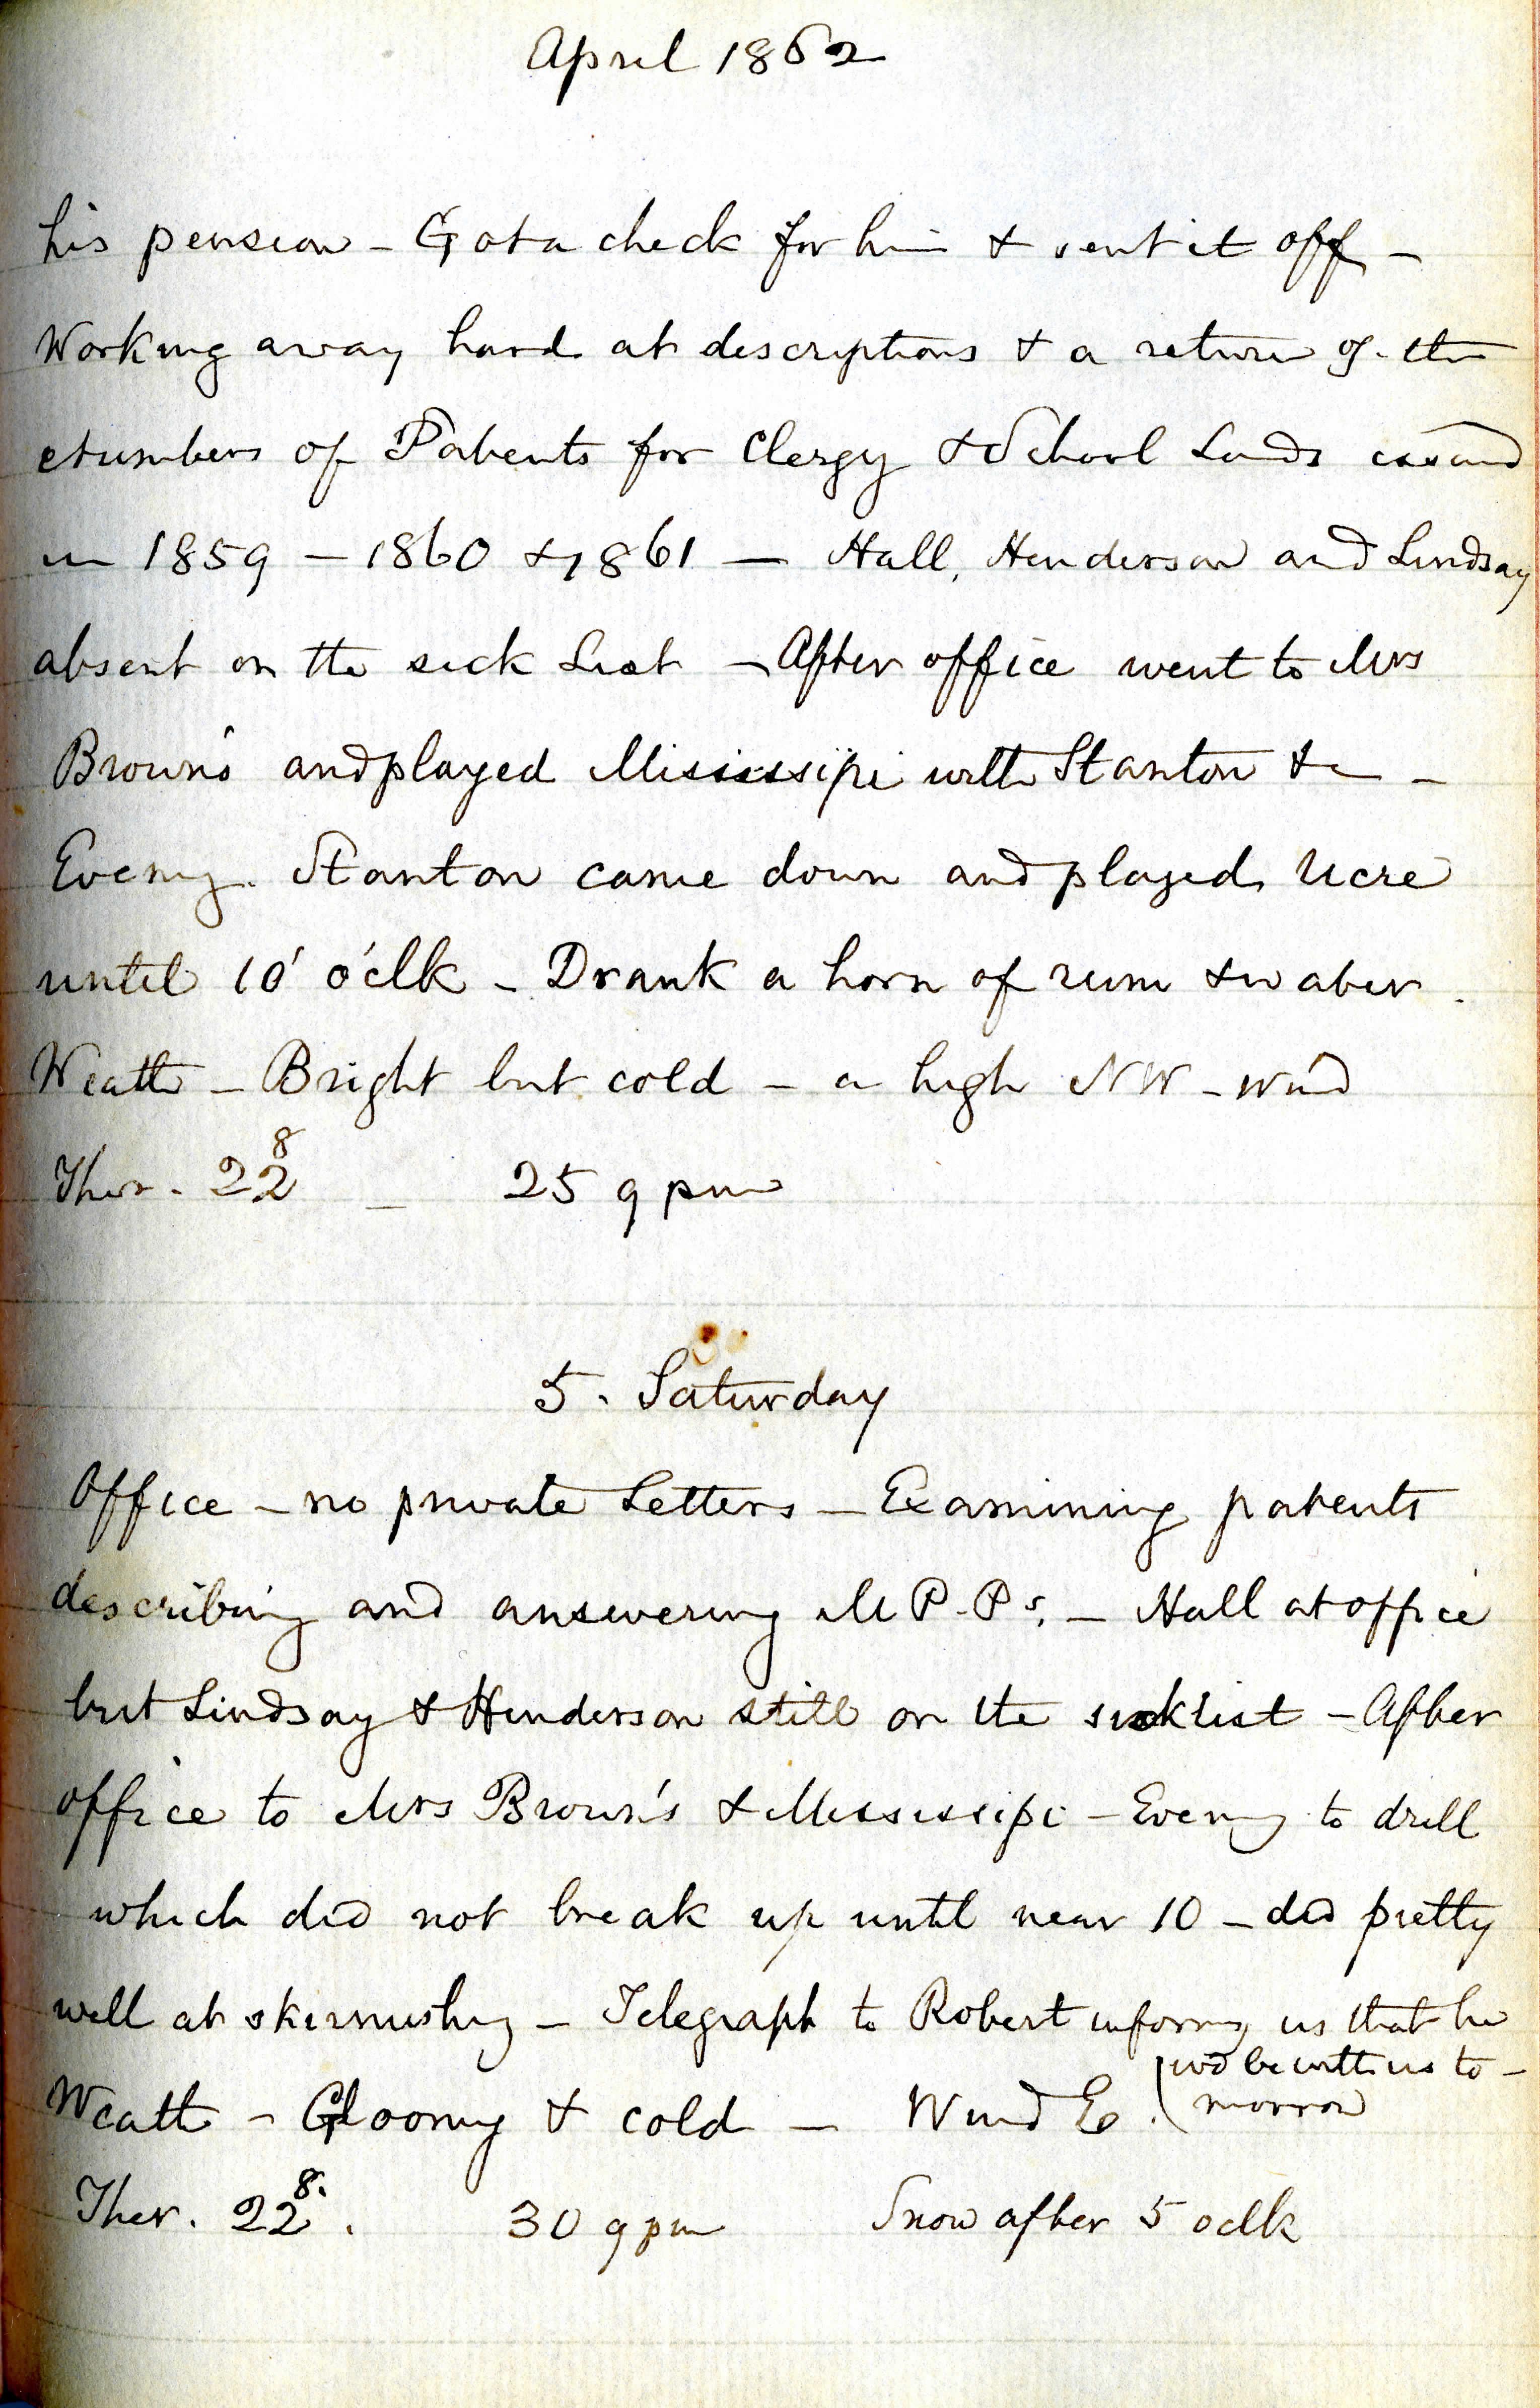 April 1862
his pension - Got a check for him & sent it off -
Working away hard at descriptions & a return of the
Numbers of Patents for Clergy & School Lands issued
in 1859 - 1860 & 1861 - Hall, Henderson and Lindsay
absent on the sick List - After office went to Mrs
Brown's and played Mississipi with Stanton &c -
Eveng. Stanton came down and played Ucre
until 10 o'clk - Drank a horn of rum & water.
Weath - Bright but cold - a high NW - wind
Ther. 22 8 - 25 9 pm
5. Saturday
Office - no private Letters - Examining patents
describing and answering M P. Ps. - Hall at office
but Lindsay & Henderson still on the sick list - After
office to Mrs Brown's & Mississipi - Eveng to drill
which did not break up until near 10 - did pretty
well at skirmishg - Telegraph to Robert informg us that he
wd be with us to-
Weath - Gloomy & cold - Wind E. (morrow
Ther. 22 8. 30 9 pm Snow after 5 oclk